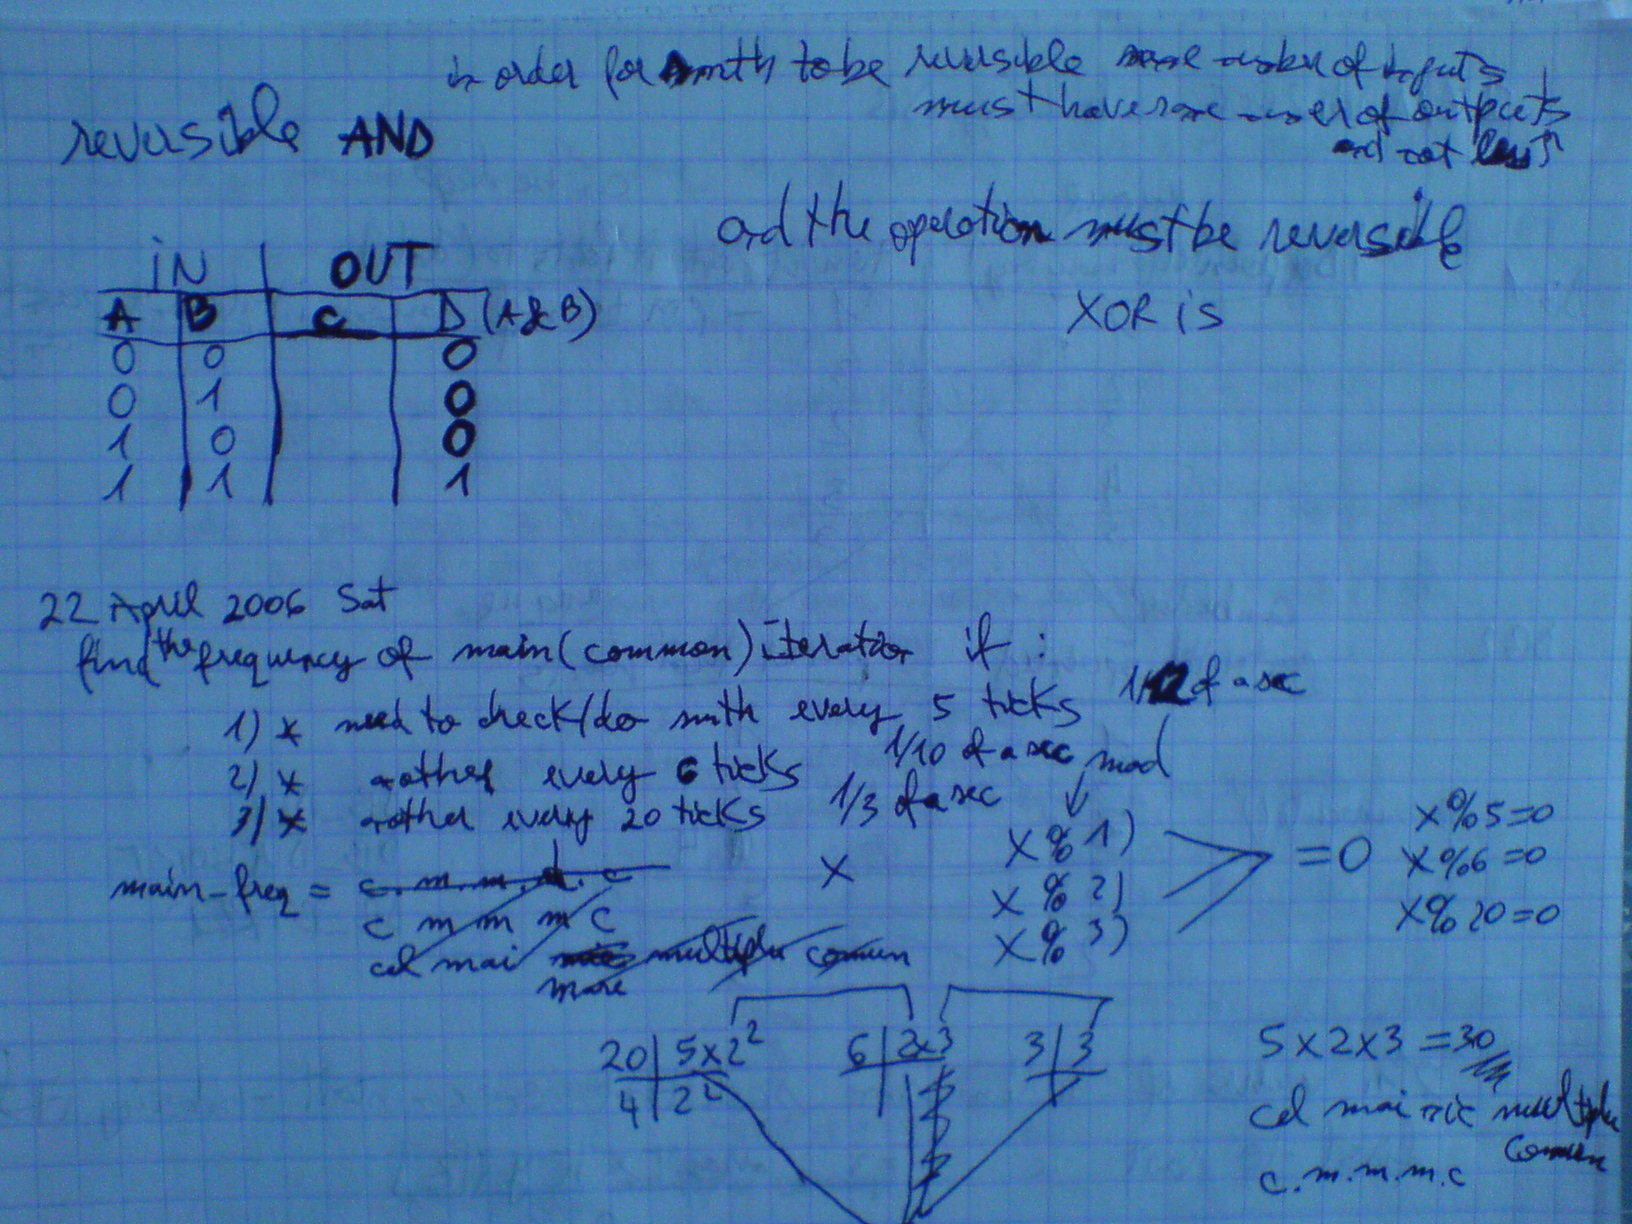 in order for smth to be reversible same number of inputs
must have same number of outputs
and not less
reversible AND
and the operation must be reversible
XOR is
IN OUT
A B C D (A&B)
0 0 0
0 1 0
1 0 0
1 1 1
22 April 2006 Sat
find the frequency of main (common) iterator if :
1) * need to check/do smth every 5 ticks 1/12 of a sec
2) * another every 6 ticks 1/10 of a sec
3) * another every 20 ticks 1/3 of a sec
mod
main_freq = c.m.m.d.c
c m m m c
cel mai multiplu comun
mare
X
X % 1)
X % 2)
X % 3)
= 0
X%5=0
X%6=0
X%20=0
20 | 5x2²
4 | 2²
6 | 2x3
3 | 3
5x2x3 = 30
cel mai mic multiplu
comun
c.m.m.m.c